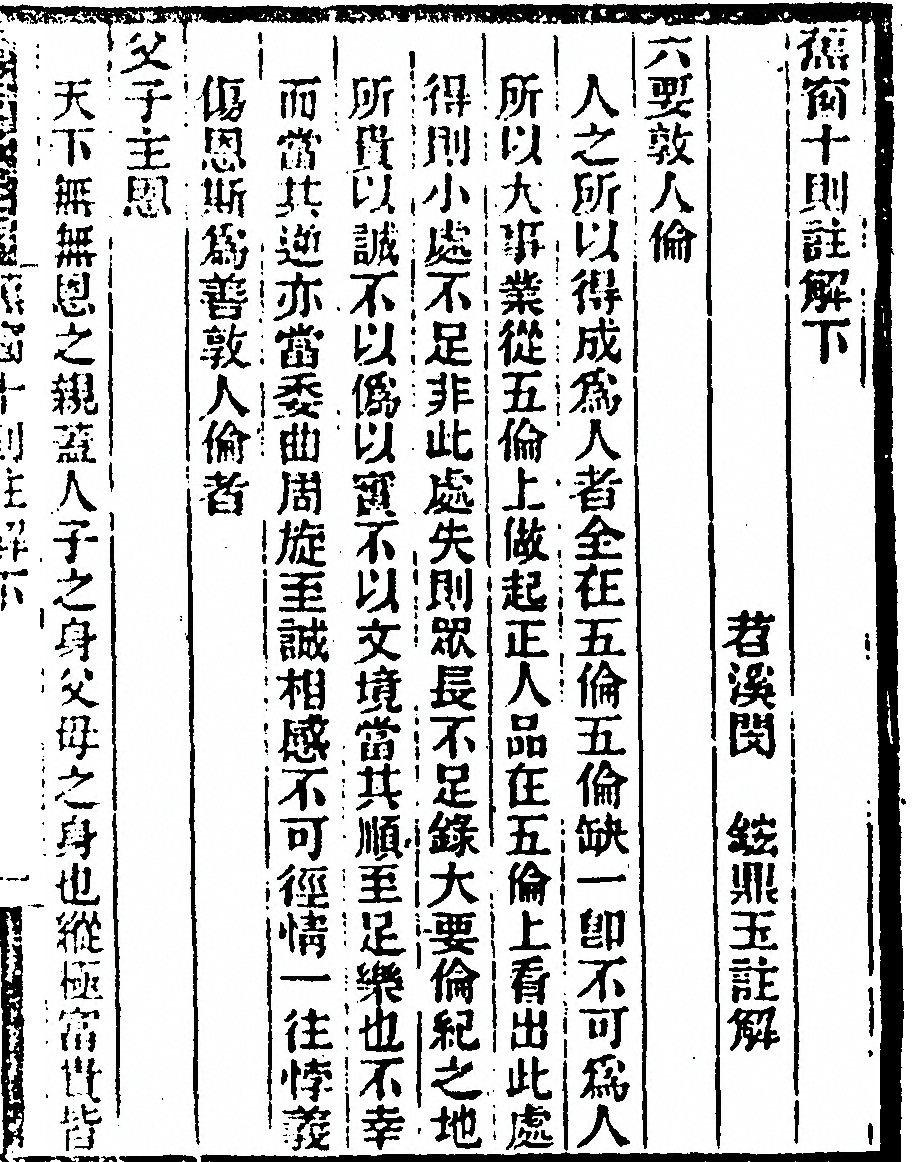 蕉窗十則註解下
苕溪閔 鋐鼎玉註解
六要敦人倫
人之所以得成爲人者全在五倫五倫缺一卽不可爲人
所以大事業從五倫上做起正人品在五倫上看出此處
得則小處不足非此處失則眾長不足錄大要倫紀之地
所貴以誠不以僞以實不以文境當其順至足樂也不幸
而當其逆亦當委曲周旋至誠相感不可徑情一往悖義
傷恩斯爲善敦人倫者
父子主恩
天下無無恩之親蓋人子之身父母之身也縱極富貴皆
蕉窗十則註解下
一